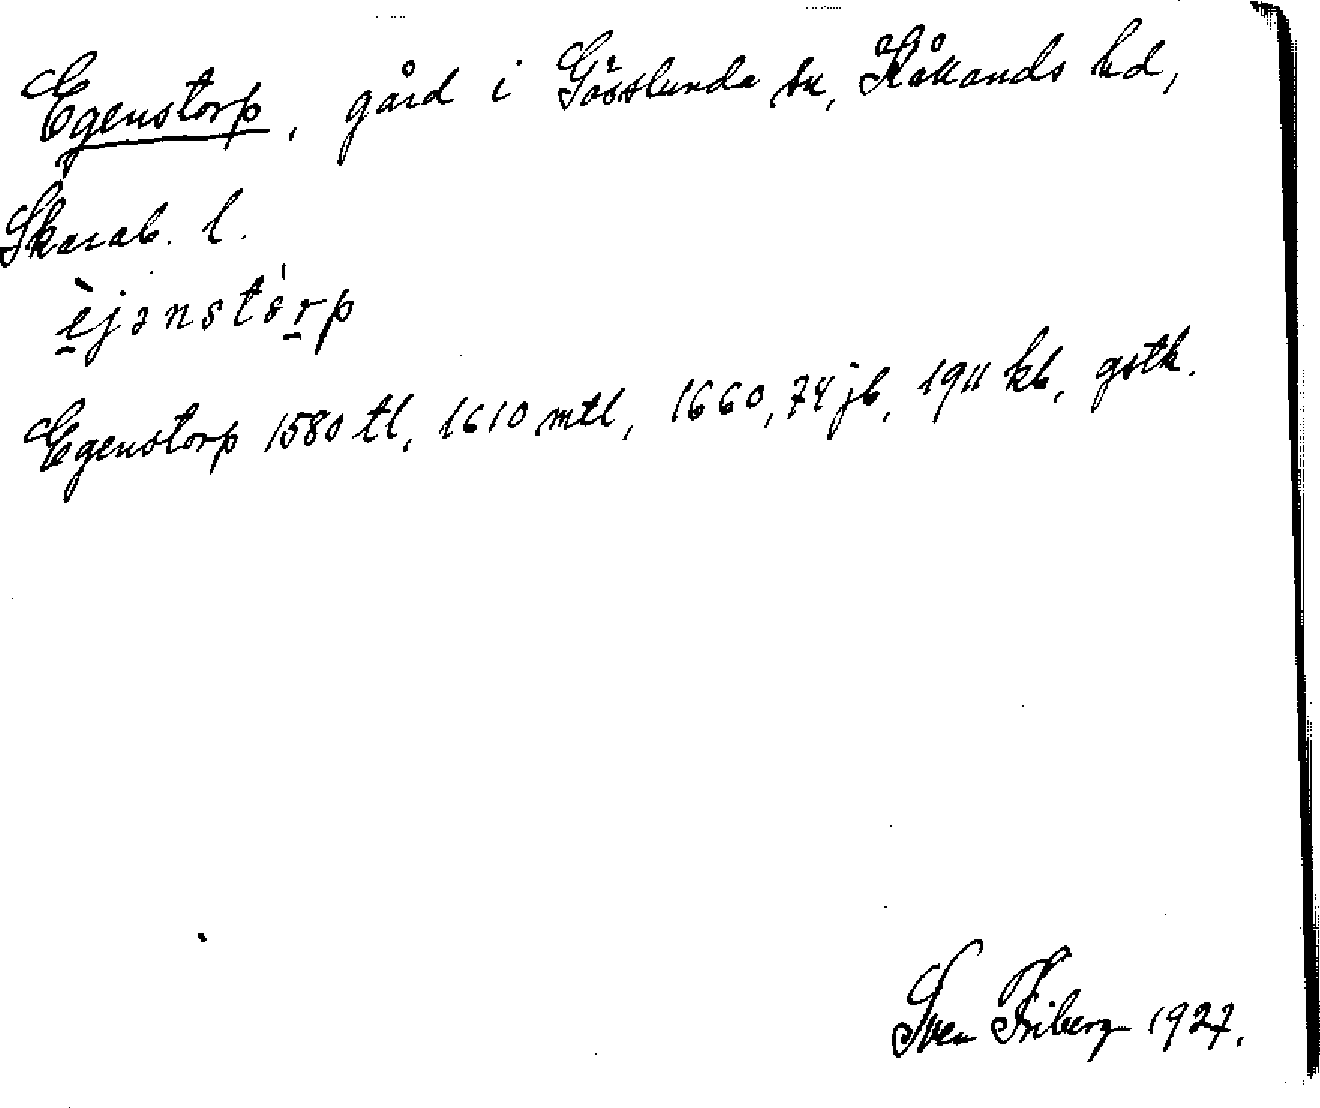 Egenstorp, gård i Gösslunda sn, Kåkands hd,
Skarab. l.
èjənstórp
Egenstorp 1580 tl, 1610 mtl, 1660, 74 jb, 1911 kb, gstk.
Sven Friberg 1927.